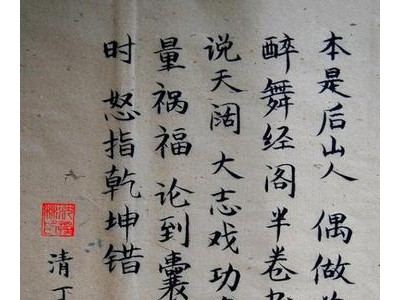 本是后山人 偶做
醉舞经阁半卷
说天阔 大志戏功
量祸福 论到囊
时 怒指乾坤错
清